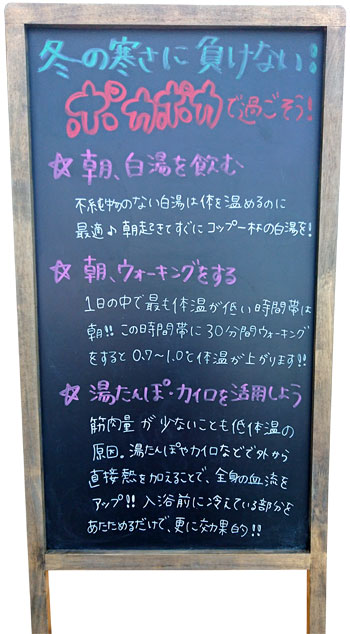 冬の寒さに負けない!
ポカポカで過ごそう!
☆朝、白湯を飲む
不純物のない白湯は体を温めるのに
最適♪朝起きてすぐにコップ一杯の白湯を!
☆朝、ウォーキングをする
1日の中で最も体温が低い時間帯は
朝!!この時間帯に30分間ウォーキング
をすると0.7〜1.0℃体温が上がります!!
☆湯たんぽ・カイロを活用しよう
筋肉量が少ないことも低体温の
原因。湯たんぽやカイロなどで外から
直接熱を加えることで、全身の血流を
アップ!!入浴前に冷えている部分を
あたためるだけで、更に効果的!!